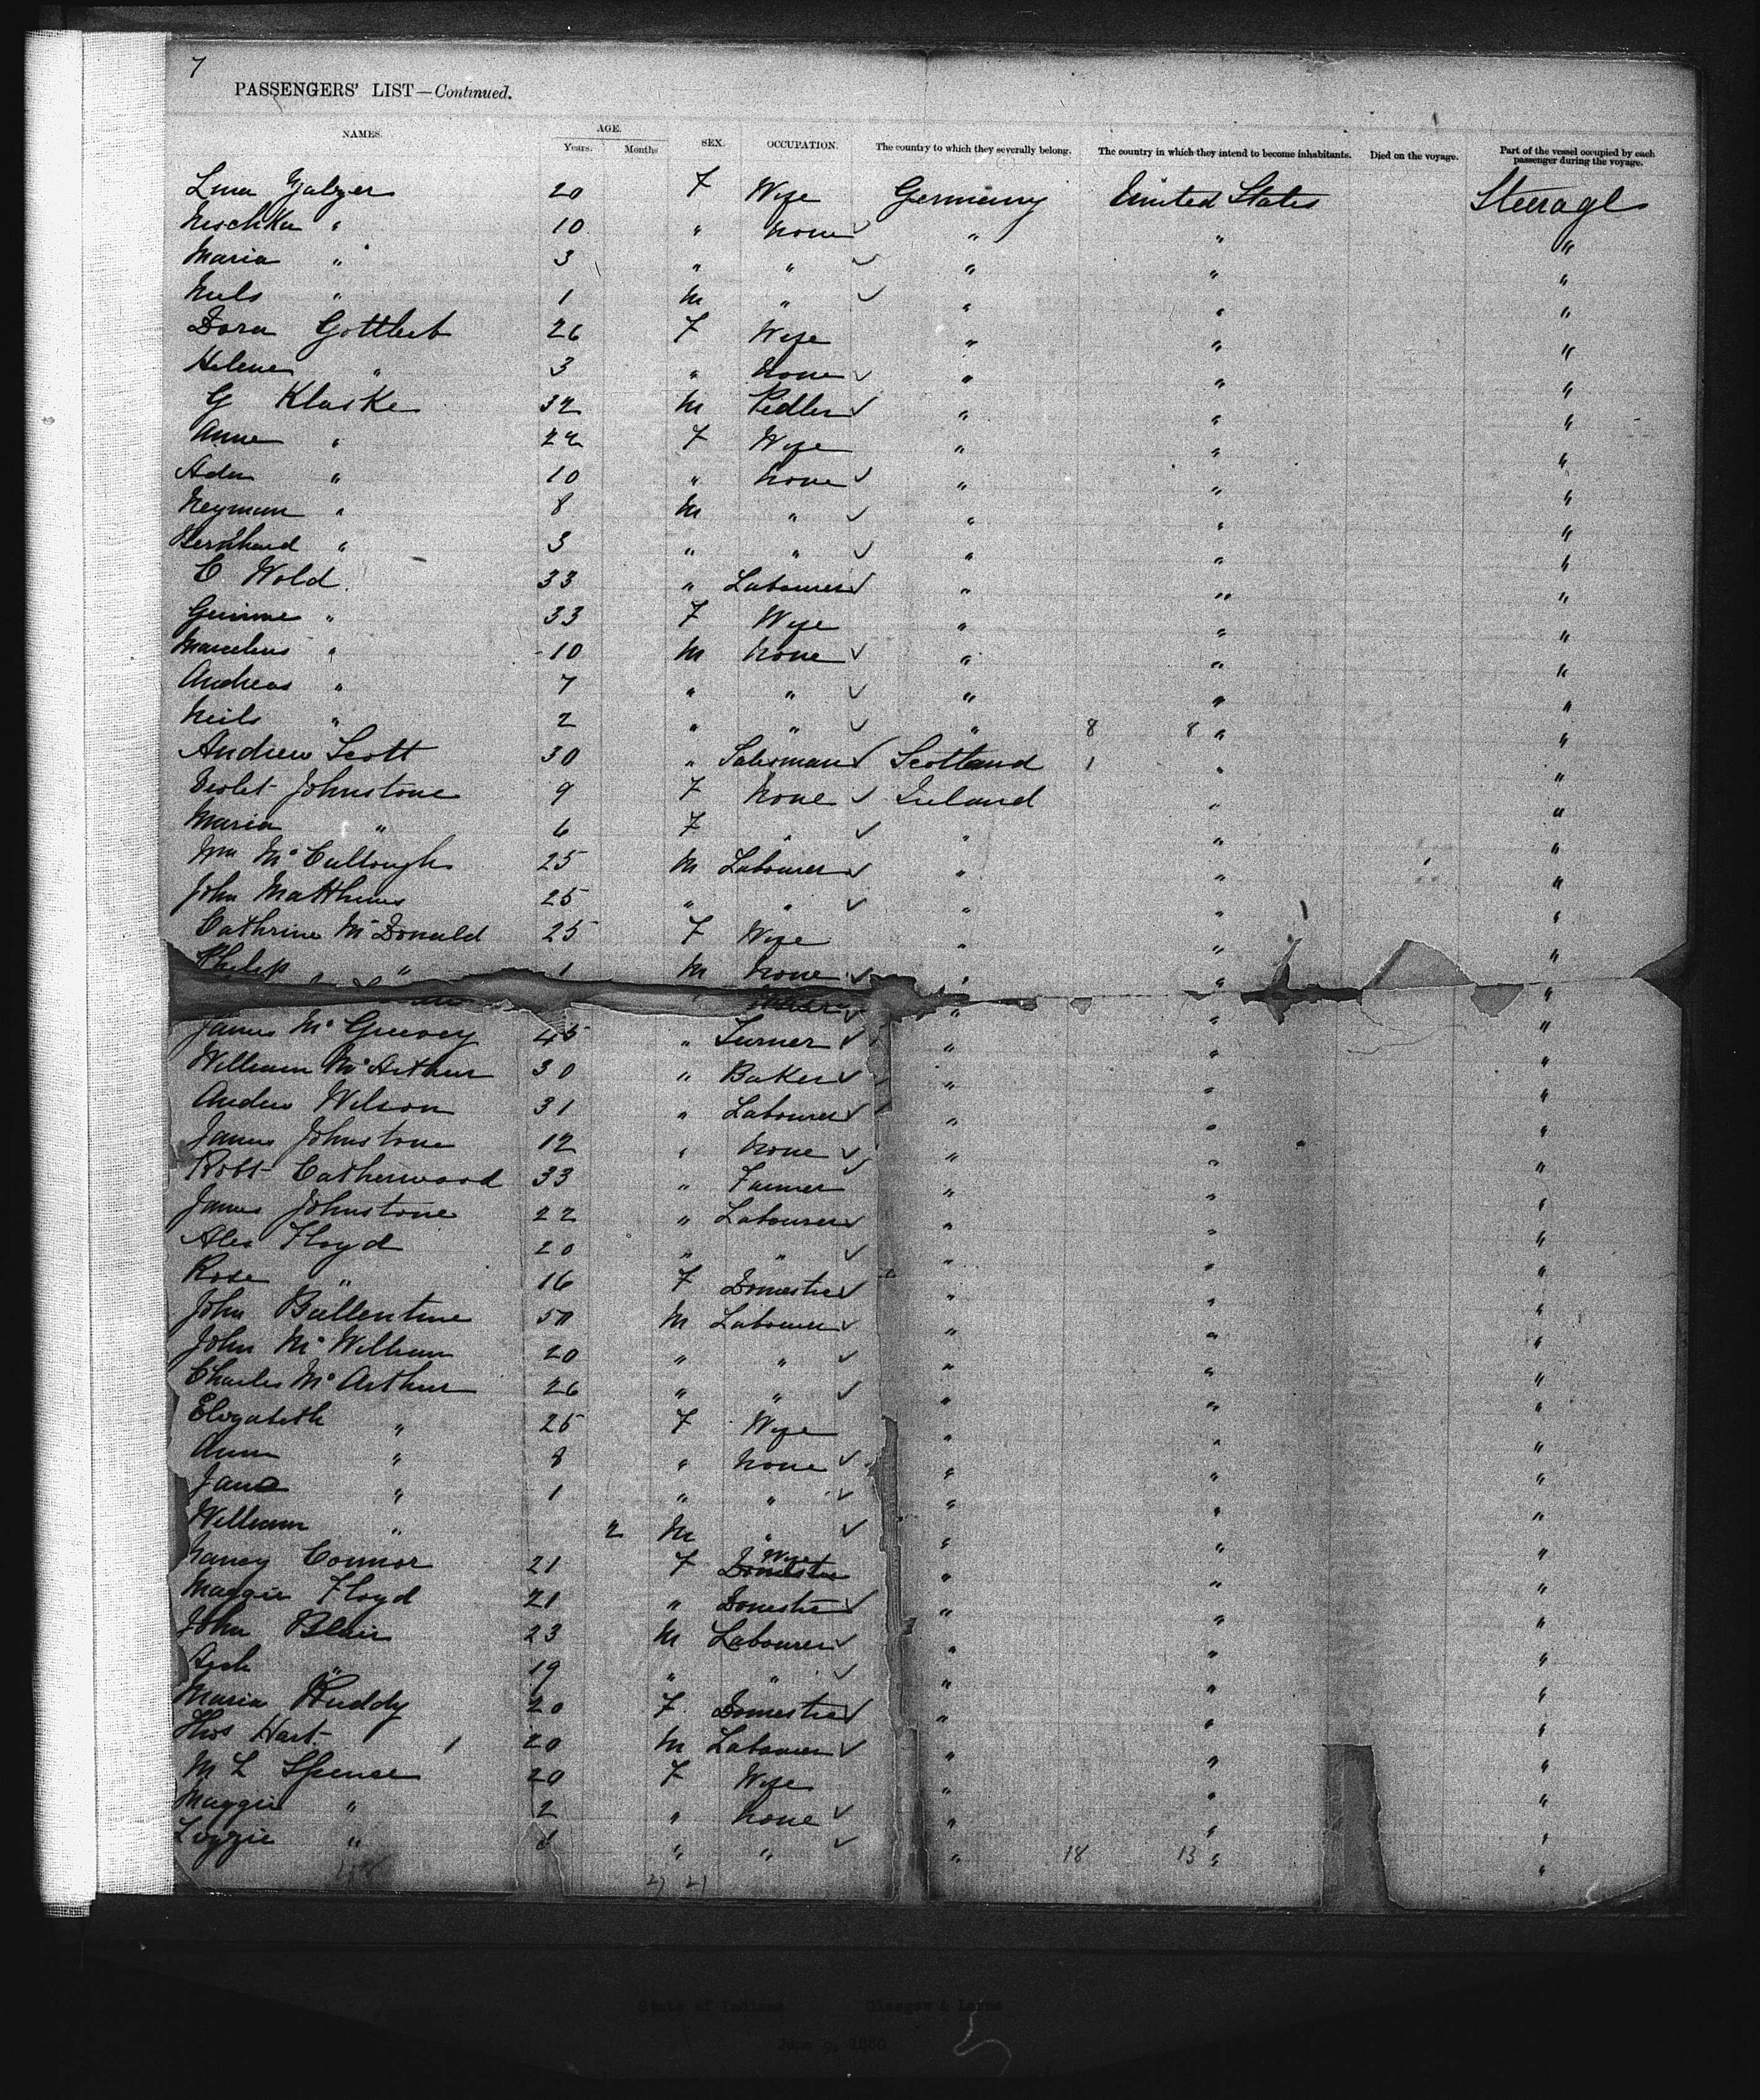 7
PASSENGERS' LIST—Continued.
NAMES. AGE. Years. Months SEX. OCCUPATION. The country to which they severally belong. The country in which they intend to become inhabitants. Died on the voyage. Part of the vessel occupied by each passenger during the voyage.
20 F Wife Germany United States Steerage
" 10 " None " " "
Maria " 3 " " " " "
" 1 M " " " "
Dora Gottlieb 26 F Wife " " "
Helene " 3 " None " " "
G Klaske 32 M Pedler " " "
Anne " 22 F Wife " " "
" 10 " None " " "
Neyman " 8 M " " " "
Bernhard " 3 " " " " "
C Wold 33 " Labourer " " "
" 33 F Wife " " "
Marcelius " 10 M None " " "
Andreas " 7 " " " " "
Neils " 2 " " " 8 8 " "
Andrew Scott 30 " Salesman Scotland 1 " "
Violet Johnstone 9 F None Ireland " "
Maria " 6 F " " " "
Wm McCullough 25 M Labourer " " "
John Matthews 25 " " " " "
Cathrine McDonald 25 F Wife " " "
Philip " 1 M None " " "
" " "
James McGreevy 45 " Turner " " "
William McArthur 30 " Baker " " "
Andrew Wilson 31 " Labourer " " "
James Johnstone 12 " None " " "
Robt Catherwood 33 " Farmer " " "
James Johnstone 22 " Labourer " " "
Alex Floyd 20 " " " " "
Rose " 16 F Domestic " " "
John Ballentine 50 M Labourer " " "
John McWilliam 20 " " " " "
Charles McArthur 26 " " " " "
Elizabeth " 25 F Wife " " "
Ann " 8 " None " " "
Jane " 1 " " " " "
William " 2 M " " " "
Nancy Connor 21 F Wife Domestic " " "
Maggie Floyd 21 " Domestic " " "
John Blair 23 M Labourer " " "
Arch " 19 " " " " "
Maria Ruddy 20 F Domestic " " "
Thos Hart 1 20 M Labourer " " "
M L Spence 20 F Wife " " "
Maggie " 2 " None " " "
Lizzie " " " " 18 13 " "
48 27 21
State of Indiana Glasgow & Larne
June 9, 1880